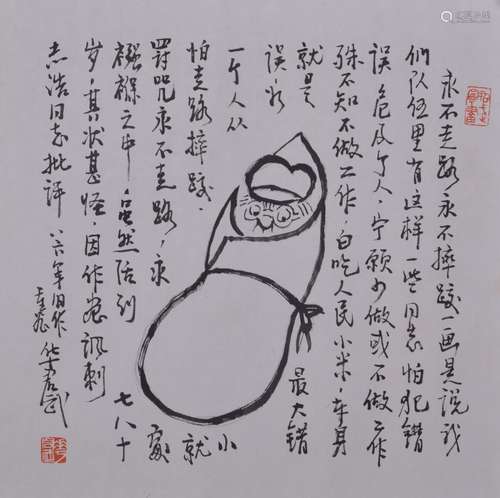 永不走路永不摔跤一画是说我
们队伍里有这样一些同志怕犯错
误危及个人，宁愿少做或不做工作
殊不知不做工作，白吃人民小米，本身
就是最大错
误
一个人从小
就
怕走路摔跤，
罚咒永不走路，永
襁褓之中，虽然活到七八十
岁，其状甚怪，因作讽刺
志浩同志批评
八六年旧作 华君武